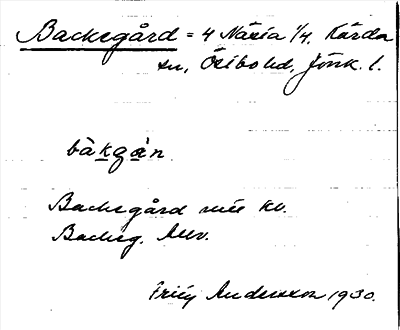 Backegård = 4 Näxia 1/4, Kärda
sn, Östbo hd, Jönk. l.
bàkgàn
Backegård
Backeg.
Fritz Andersson 1930.